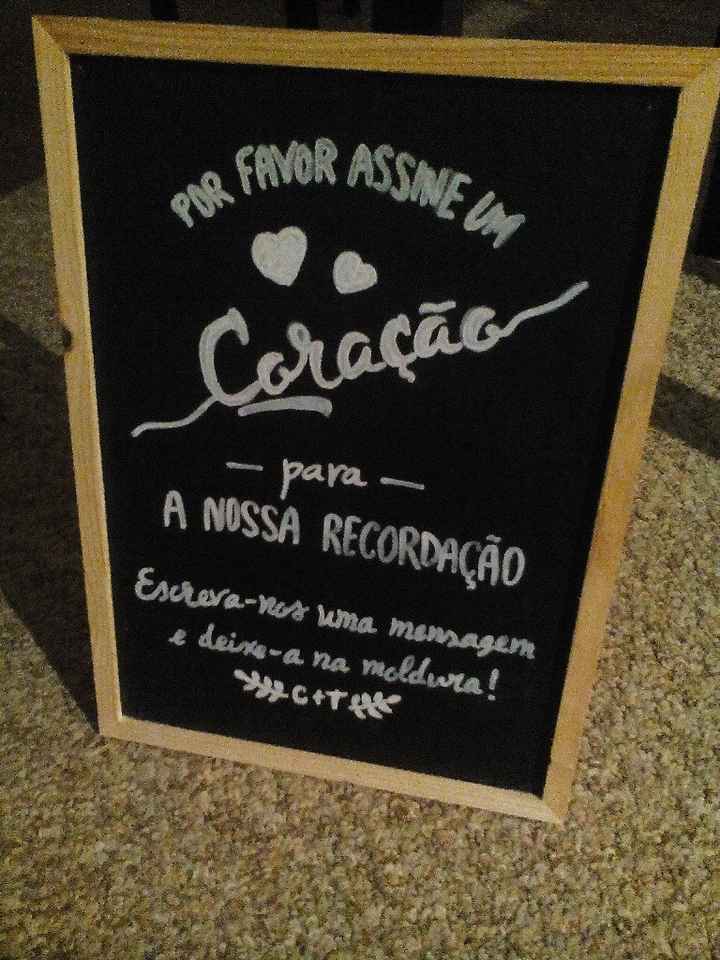 POR FAVOR ASSINE UM
Coração
— para —
A NOSSA RECORDAÇÃO
Escreva-nos uma mensagem
e deixe-a na moldura!
C+T